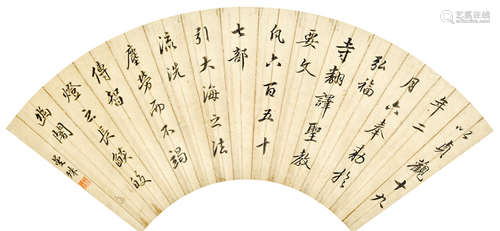 以貞觀十九
年二
月六奉勅於
弘福
寺翻譯聖教
要文
凡六百五十
七部
引大海之法
流洗
塵勞而不竭
傳智
燈之長燄皎
幽闇
艺狐在线